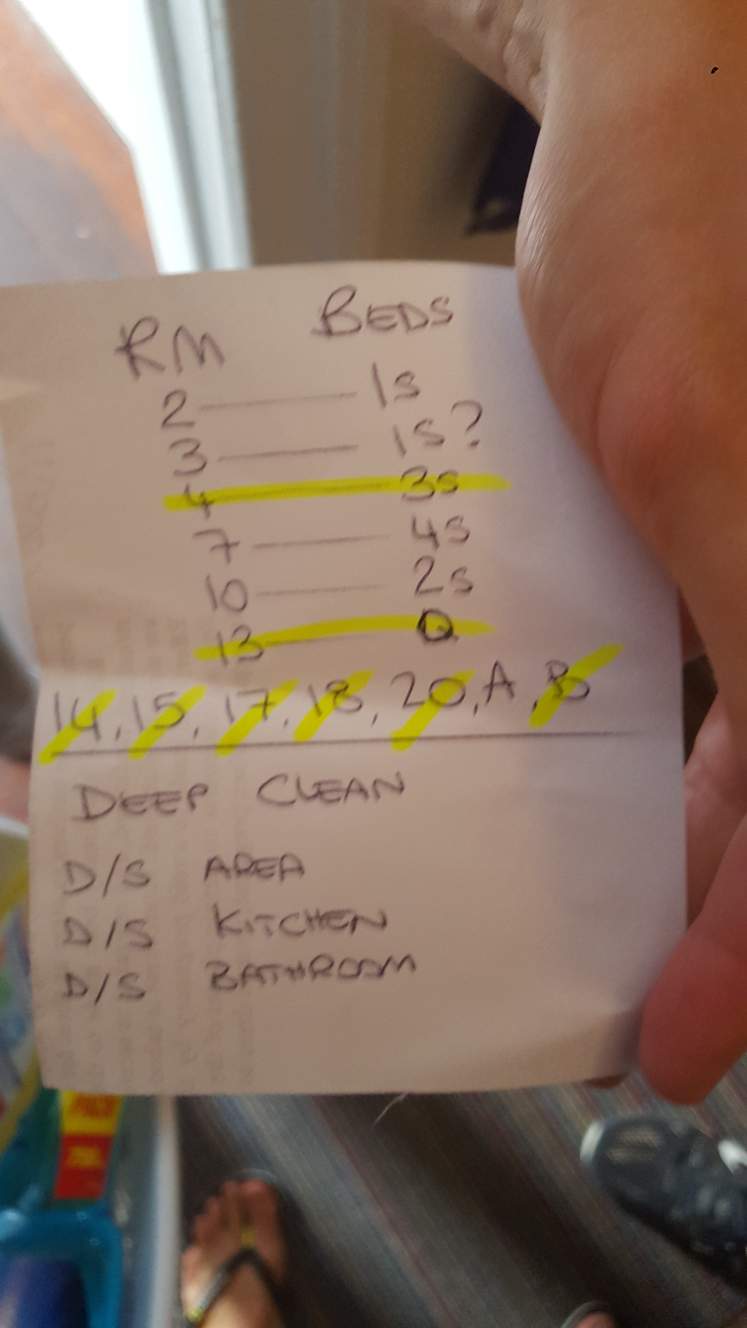 RM BEDS
2 — 1s
3 — 1s?
4 — 3s
7 — 4s
10 — 2s
13 — Q
14, 15, 17, 18, 20, A, B
DEEP CLEAN
D/S AREA
D/S KITCHEN
D/S BATHROOM